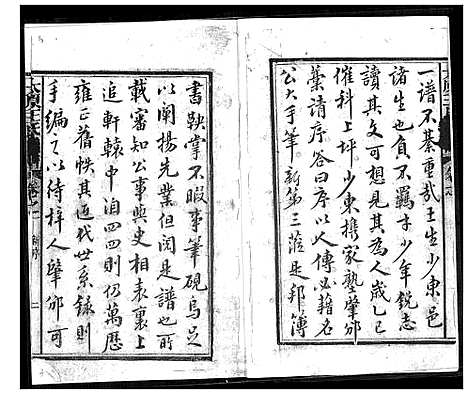 一譜不綦重哉王生少東邑
諸生也負不羈才少年銳志
讀其文可想見其為人歲乙巳
催科上坪少東携家塾肇邠
藁請序答曰序以人傳必藉名
公大手筆新第三蒞是邦簿
書鞅掌不暇事筆硯烏足
以闡揚先業但閱是譜也所
載審知公事與史相表裏上
追軒轅中洎四四則仍萬歷
雍正舊帙其近代世系錄則
手編之以待梓人肇邠可
太原王氏
卷之一
新序
二